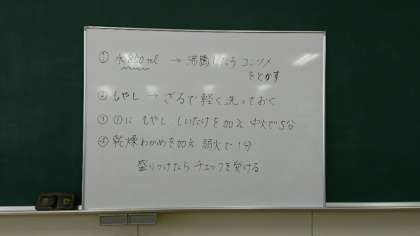 ① 水 800 ml → 沸騰したら コンソメ
をとかす
② もやし → ざるで軽く洗っておく
③ ①に もやし しいたけを加え 中火で5分
④ 乾燥わかめを加え 弱火で1分
盛りつけたら チェックを受ける